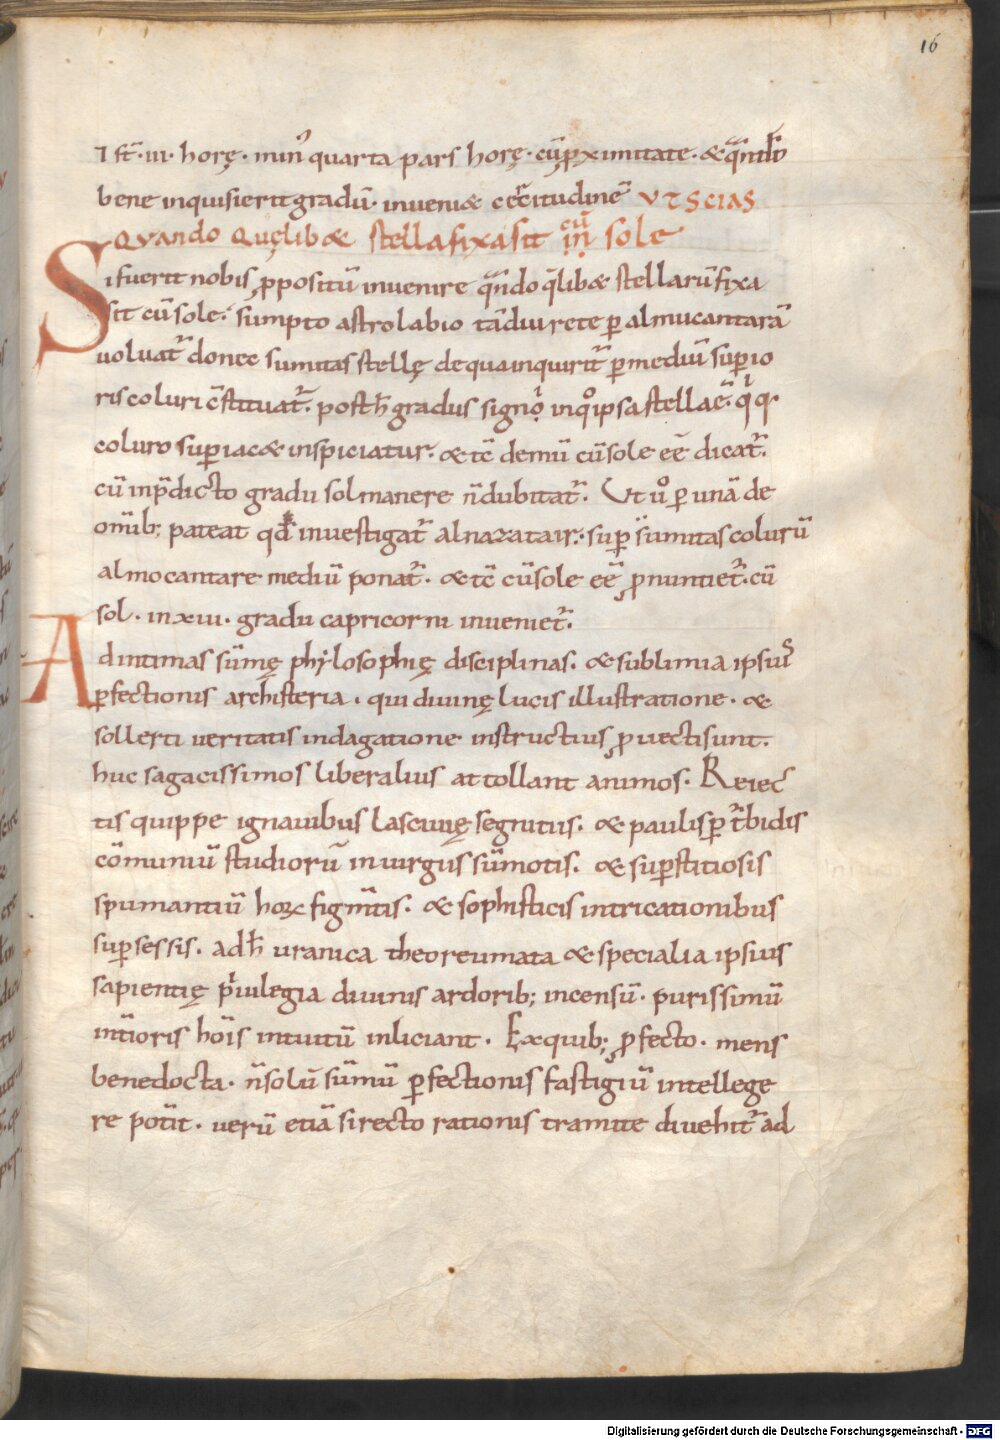 16
⁊ st̄· iii· horę· min᷒ quarta pars horę· cū ꝓximitate· & q̄ndo
bene inquisierit gradū· inveni& certitudinē VT SCIAS
QVANDO QVęLIB& stella fixa sit cū in sole
Si fuerit nobis ꝓpositū invenire q̄ndo q̄lib& stellarū fixa
sit cū sole· sumpto astrolabio tādiu rete ꝑ almucantarā
voluat̄ donec sumitas stellę de qua inquirit̄ ꝑ mediū suꝑio
ris coluri c̄stituat̄· post h̄ gradus signoꝝ in qͦ ipsa stella ē· qͥ q̄
coluro suꝑiac& inspiciatur· & tc̄ demū cū sole eē dicat̄·
cū in p̄dicto gradu sol manere n̄ dubitat̄· Ut uͦ ꝑ unā de
omīb; pateat qd̄ investigat̄ alnazatair· suꝑ sūmitas colurū
almocantare mediū ponat̄· & tc̄ cū sole eē ꝓnuntiet̄· cū
sol· in xiii· gradu capricorni inveniet̄·
Ad intimas sūmę phylosophię disciplinas· & sublimia ipsiuˢ
ꝑfectionis archisteria· qui divinę lucis illustratione· &
sollerti veritatis indagatione instructius ꝓvecti sunt·
huc sagacissimos liberalius attollant animos· Reiec
tis quippe ignavibus lascivię segnitiis· & paulisꝑ t̄bidis
cōmuniū studiorū in virgiis sūmotis· & suꝑstitiosis
spumantiū hoꝝ figm̄tis· & sophisticis intricationibus
suꝑsessis· ad h̄ uranica theoreumata & specialia ipsius
sapientię pͥvilegia divinis ardorib; incensū· purissimū
int̄ioris hōis intuitū inliciant· Ex quib; ꝓfecto· mens
bene docta· n̄ solū sūmū ꝑfectionis fastigiū intellege
re pot̄it· verū etiā si recto rationis tramite divehit̄ ad
Digitalisierung gefördert durch die Deutsche Forschungsgemeinschaft - DFG